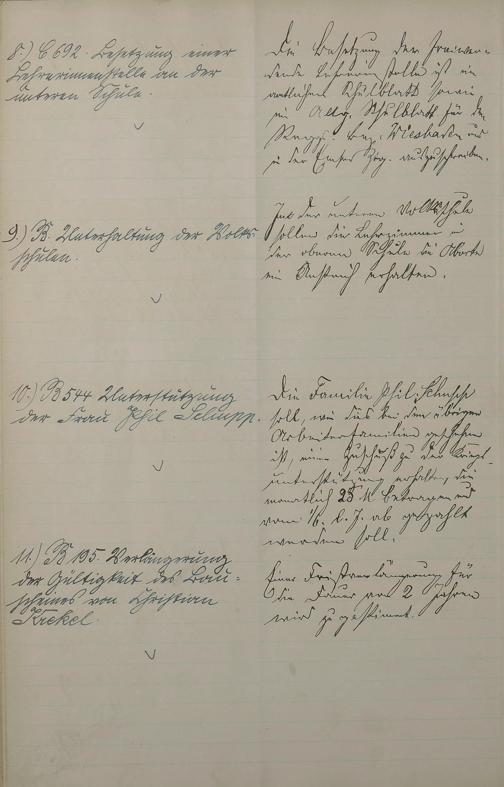 8.) C 692. Besetzung einer
Lehrerinnenstelle an der
unteren Schule.
Die Besetzung der freiwer-
denden Lehrerinstelle ist im
amtlichen Schulblatt sowie
im Allg. Schulblatt für den
Reggs. Bez. Wiesbaden und
in der Emser Ztg. auszuschreiben.
9.) B. Unterhaltung der Volks-
schulen.
In der unteren Volksschule
sollen die Lehrzimmer in
der oberen Schule die Aborte
ein Anstrich erhalten.
10.) B 544 Unterstützung
der Frau Phil Schupp.
Die Familie Phil. Schupp
soll, wie dies bei den übrigen
Arbeiterfamilien geschehen
ist, einen Zuschuß zu der Kriegs-
unterstützung erhalten, die
monatlich 25 M betragen und
vom 1/6. d. J. ab gezahlt
werden soll.
11.) B 195 Verlängerung
der Gültigkeit des Bau-
scheines von Christian
Krekel.
Eine Fristverlängerung für
die Dauer von 2 Jahren
wird zugestimmt.